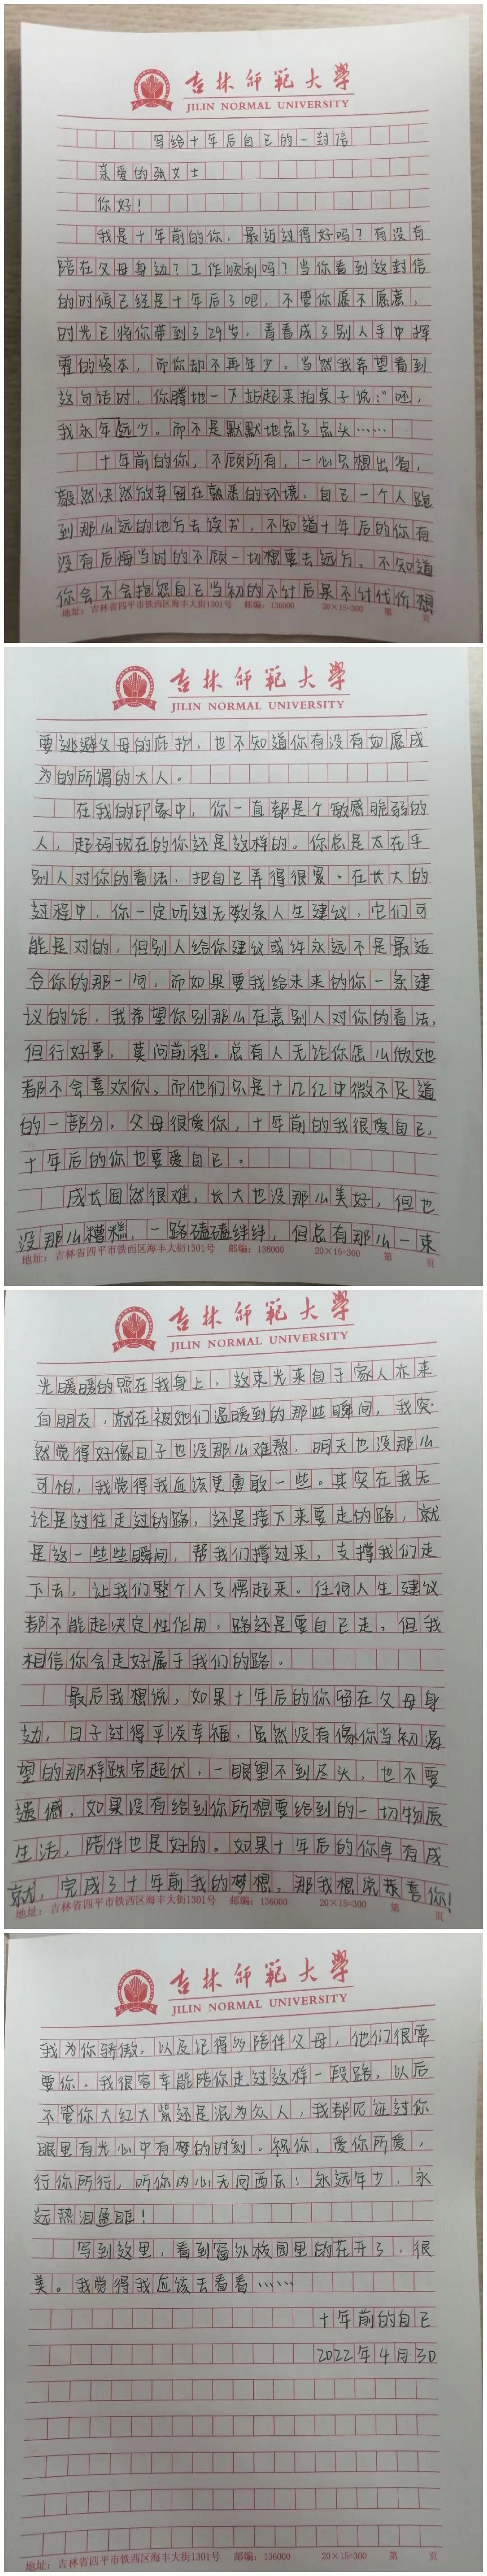 吉林师范大学
JILIN NORMAL UNIVERSITY
写给十年后自己的一封信
亲爱的张女士
你好！
我是十年前的你，最近过得好吗？有没有
陪在父母身边？工作顺利吗？当你看到这封信
的时候已经是十年后了吧，不管你愿不愿意，
时光已将你带到了29岁，青春成了别人手中挥
霍的资本，而你却不再年少。当然我希望看到
这句话时，你腾地一下站起来拍桌子说："呸，
我永年远少。而不是默默地点了点头……
十年前的你，不顾所有，一心只想出省，
毅然决然放弃留在熟悉的环境，自己一个人跑
到那么远的地方去读书，不知道十年后的你有
没有后悔当时的不顾一切想要去远方。不知道
你会不会抱怨自己当初的不计后果不计代价想
地址：吉林省四平市铁西区海丰大街1301号 邮编：136000 20×15=300 第 页
吉林师范大学
JILIN NORMAL UNIVERSITY
要逃避父母的庇护，也不知道你有没有如愿成
为的所谓的大人。
在我的印象中，你一直都是个敏感脆弱的
人，起码现在的你还是这样的。你总是太在乎
别人对你的看法，把自己弄得很累。在长大的
过程中，你一定听过无数条人生建议，它们可
能是对的，但别人给你建议或许永远不是最适
合你的那一句，而如果要我给未来的你一条建
议的话，我希望你别那么在意别人对你的看法，
但行好事，莫问前程。总有人无论你怎么做她
都不会喜欢你，而他们只是十几亿中微不足道
的一部分。父母很爱你，十年前的我很爱自己，
十年后的你也要爱自己。
成长固然很难，长大也没那么美好，但也
没那么糟糕，一路磕磕绊绊，但总有那么一束
地址：吉林省四平市铁西区海丰大街1301号 邮编：136000 20×15=300 第 页
吉林师范大学
JILIN NORMAL UNIVERSITY
光暖暖的照在我身上，这束光来自于家人亦来
自朋友，就在被她们温暖到的那些瞬间，我突
然觉得好像日子也没那么难熬，明天也没那么
可怕，我觉得我应该更勇敢一些。其实在我无
论是过往走过的路，还是接下来要走的路，就
是这一些些瞬间，帮我们撑过来，支撑我们走
下去，让我们整个人支愣起来。任何人生建议
都不能起决定性作用，路还是要自己走，但我
相信你会走好属于我们的路。
最后我想说，如果十年后的你留在父母身
边，日子过得平淡幸福，虽然没有像你当初渴
望的那样跌宕起伏，一眼望不到尽头，也不要
遗憾，如果没有给到你所想要给到的一切物质
生活，陪伴也是好的。如果十年后的你卓有成
就，完成了十年前我的梦想，那我想说恭喜你！
地址：吉林省四平市铁西区海丰大街1301号 邮编：136000 20×15=300 第 页
吉林师范大学
JILIN NORMAL UNIVERSITY
我为你骄傲。以及记得多陪伴父母，他们很需
要你。我很容幸能陪你走过这样一段路，以后
不管你大红大紫还是泯为众人，我都见证过你
眼里有光心中有梦的时刻。祝你，爱你所爱，
行你所行，听你内心无问西东；永远年少，永
远热泪盈眶！
写到这里，看到窗外校园里的花开了，很
美。我觉得我应该去看看……
十年前的自己
2022年4月30
地址：吉林省四平市铁西区海丰大街1301号 邮编：136000 20×15=300 第 页